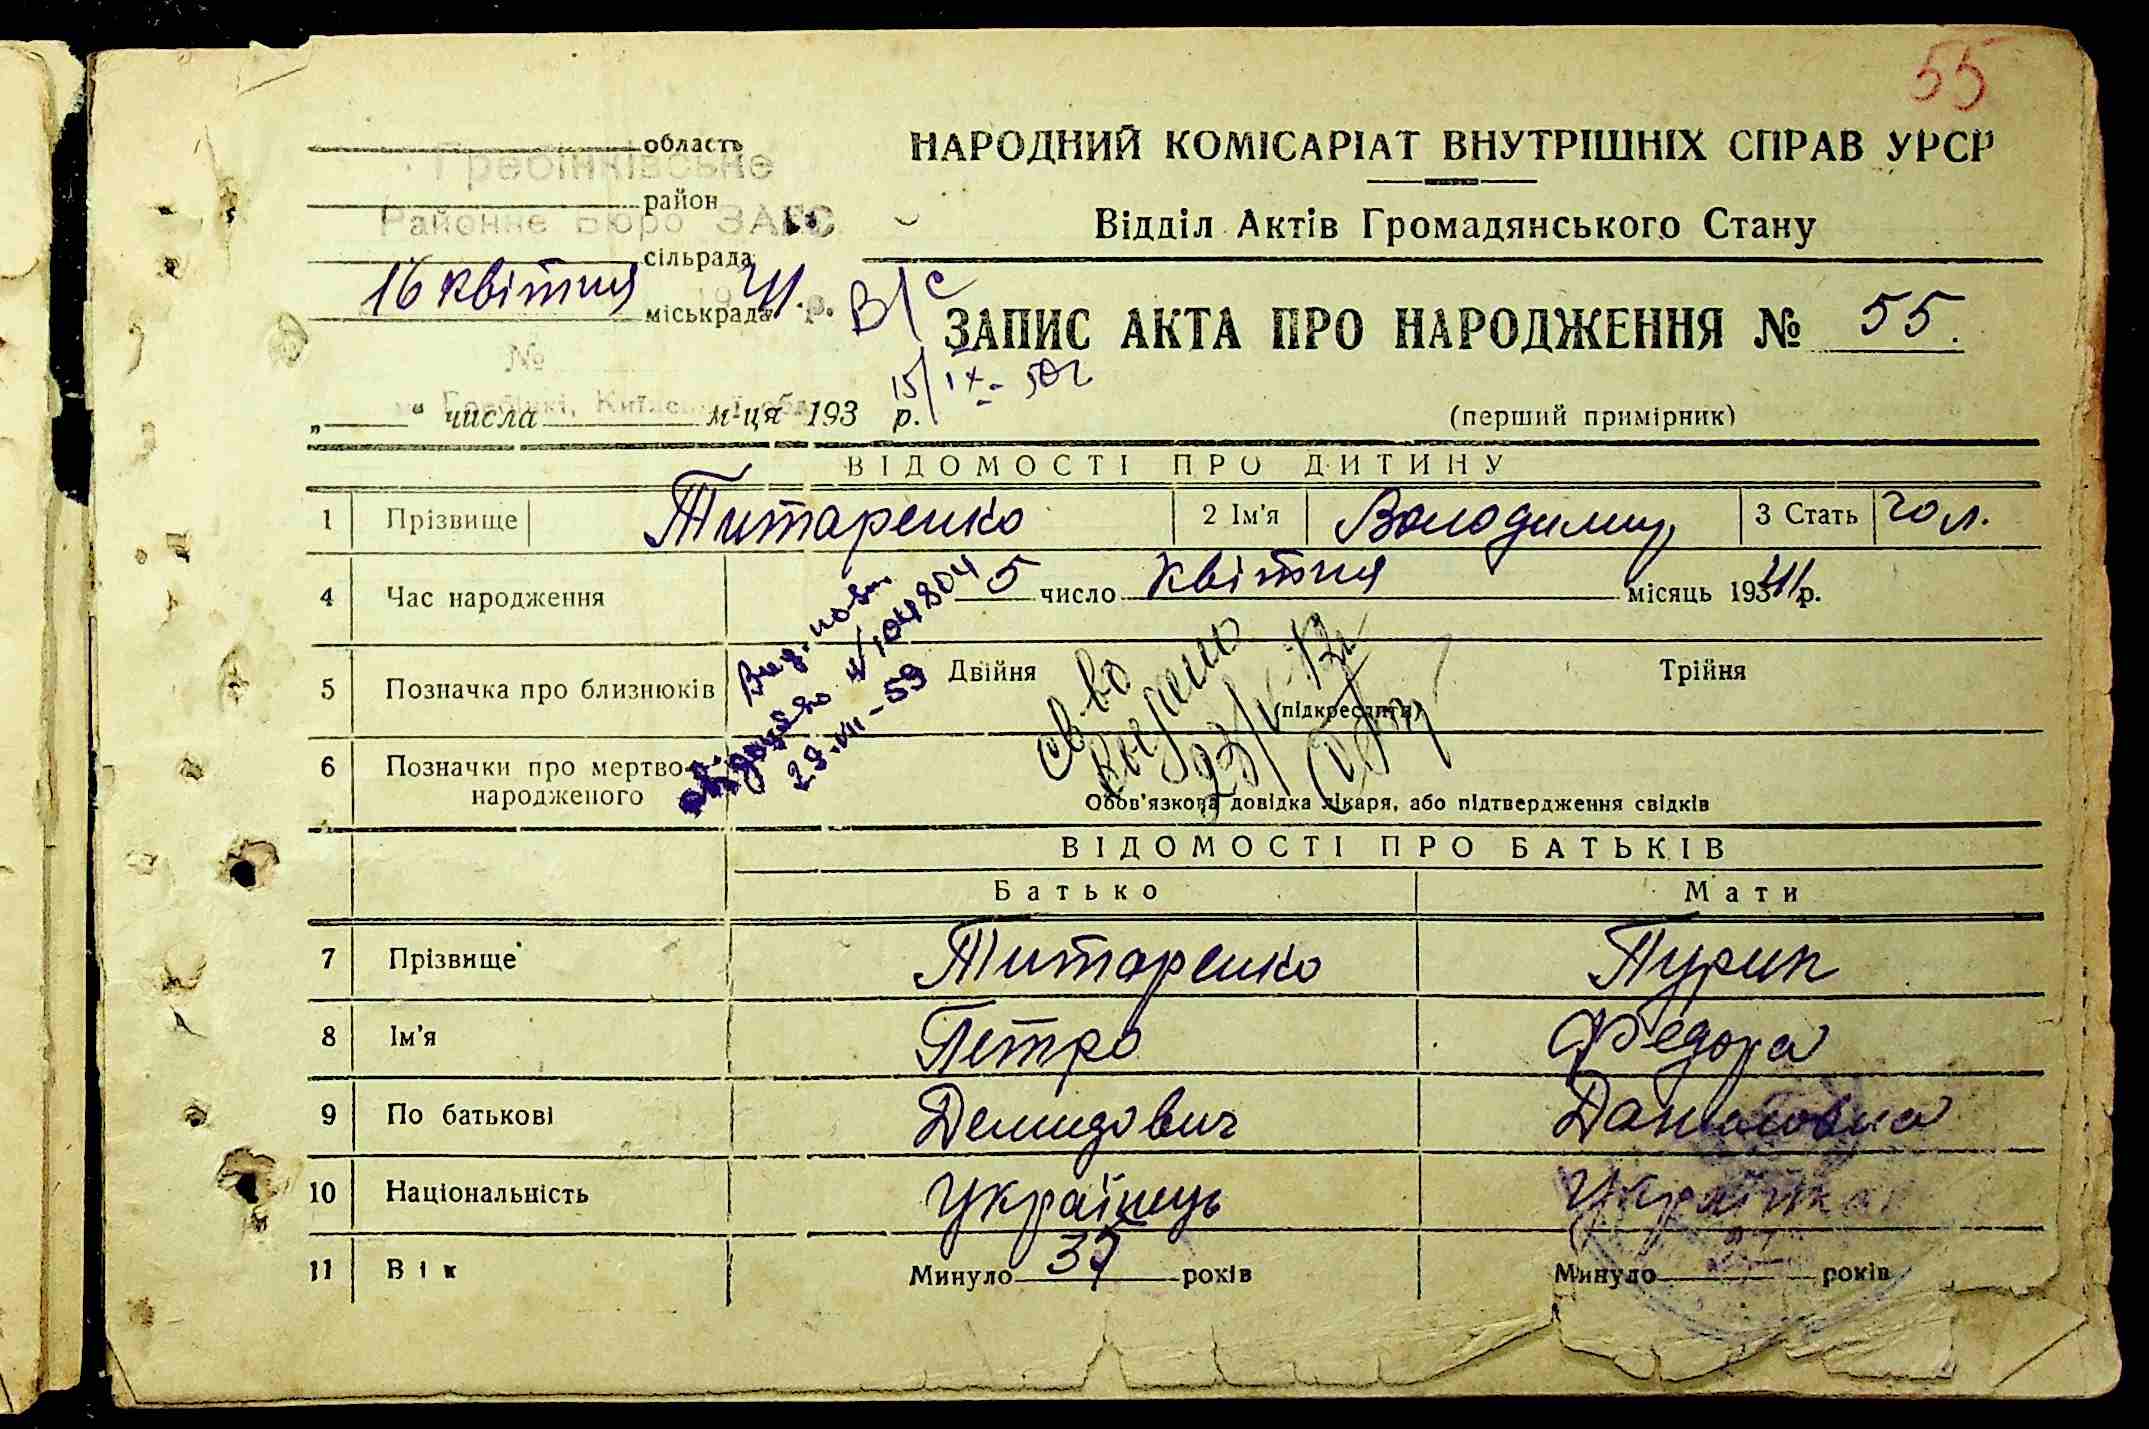 55
область
Гребінківське
район
Районне Бюро ЗАГС
сільрада
16 квітня 1941 р.
міськрада
№
Гребінкі, Київської обл.
„ “ числа м-ця 193 р.
НАРОДНИЙ КОМІСАРІАТ ВНУТРІШНІХ СПРАВ УРСР
Відділ Актів Громадянського Стану
В/с
ЗАПИС АКТА ПРО НАРОДЖЕННЯ № 55.
15/IX- 50г
(перший примірник)
ВІДОМОСТІ ПРО ДИТИНУ
1 Прізвище Титаренко 2 Ім'я Володимир 3 Стать чол.
4 Час народження 5 число квітня місяць 1941 р.
5 Позначка про близнюків Двійня Трійня
(підкреслити)
Вид. повт.
свідоцтво 104804
29.VII-59
св-во
23/V-
6 Позначки про мертво-
народженого
Обов'язкова довідка лікаря, або підтвердження свідків
ВІДОМОСТІ ПРО БАТЬКІВ
Батько Мати
7 Прізвище Титаренко Пурик
8 Ім'я Петро Федора
9 По батькові Демидович Даниловна
10 Національність Українець Українка
11 Вік Минуло 35 років Минуло років